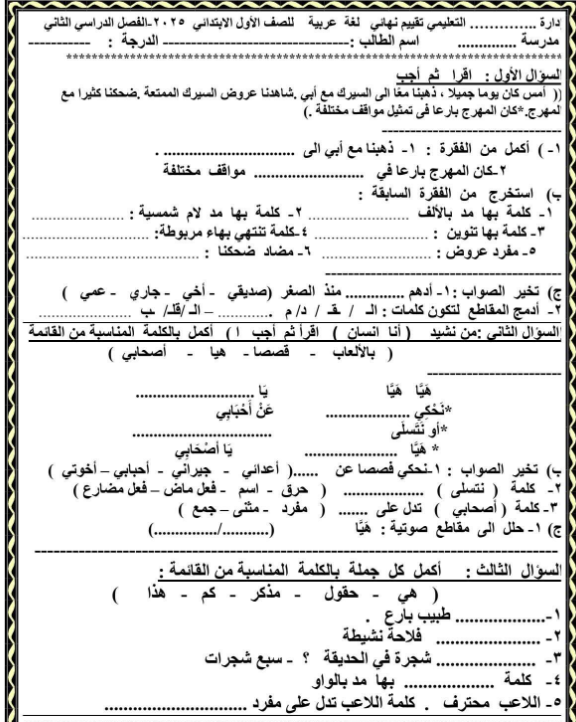 دارة .............. التعليمي تقييم نهائي لغة عربية للصف الأول الابتدائي ٢٠٢٥-الفصل الدراسي الثاني
مدرسة ............... اسم الطالب :------------------------------ الدرجة : ----------
السؤال الأول : اقرا ثم أجب
(( أمس كان يوما جميلا ، ذهبنا معًا الى السيرك مع أبي .شاهدنا عروض السيرك الممتعة .ضحكنا كثيرا مع
لمهرج.*كان المهرج بارعا فى تمثيل مواقف مختلفة .)
١- ) أكمل من الفقرة : ١- ذهبنا مع أبي الى ............................. .
٢-كان المهرج بارعا في ......................... مواقف مختلفة
ب) استخرج من الفقرة السابقة :
١- كلمة بها مد بالألف ......................... ٢- كلمة بها مد لام شمسية : .........................
٣- كلمة بها تنوين : ......................... ٤-كلمة تنتهي بهاء مربوطة: .........................
٥- مفرد عروض : ......................... ٦- مضاد ضحكنا : .........................
ج) تخير الصواب :١- أدهم ............. منذ الصغر (صديقي - أخي - جاري - عمي )
٢- أدمج المقاطع لتكون كلمات : الـ / قـ / د/ م ............... – الـ /قلـ/ ـب ......................
السؤال الثاني :من نشيد ( أنا انسان ) اقرأ ثم أجب ١) أكمل بالكلمة المناسبة من القائمة
( بالألعاب - قصصا - هيا - أصحابي )
هَيَّا هَيَّا يَا .........................
*نَحْكِي .................. عَنْ أَحْبَابِي
*أو نَتَسلَّى .........................
* هَيَّا .................... يَا أصْحَابِي
ب) تخير الصواب : ١-نحكي قصصا عن ......( أعدائي - جيراني - أحبابي – أخوتي )
٢- كلمة ( نتسلى ) .................. ( حرق - اسم - فعل ماض – فعل مضارع )
٣- كلمة ( أصحابي ) تدل على ....... ( مفرد - مثنى – جمع )
ج) ١- حلل الى مقاطع صوتية : هَيَّا (.............../...........)
السؤال الثالث : أكمل كل جملة بالكلمة المناسبة من القائمة :
( هي - حقول - مذكر - كم - هذا )
١-..................... طبيب بارع .
٢- ..................... فلاحة نشيطة
٣- ..................... شجرة في الحديقة ؟ - سبع شجرات
٤- كلمة .................. بها مد بالواو
٥- اللاعب محترف . كلمة اللاعب تدل على مفرد .........................